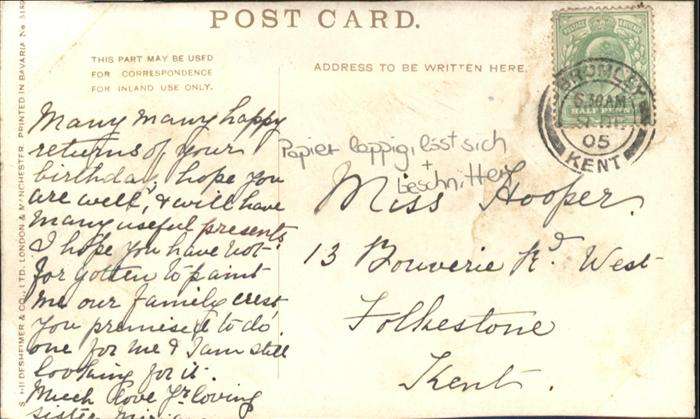 POST CARD.
THIS PART MAY BE USED
FOR CORRESPONDENCE
FOR INLAND USE ONLY.
ADDRESS TO BE WRITTEN HERE.
POSTAGE REVENUE
HALF PENNY
BROMLEY
6.30 AM
05
KENT
Many many happy
returns of your
birthday, hope you
are well, & will have
many useful presents.
I hope you have not
forgotten to paint
me our family crest
you promised to do
one for me & I am still
looking for it.
Much love Yr loving
sister
Papier lappig, löst sich
+
beschnitten
Miss Hooper.
13 Bouverie Rd. West
Folkestone
Kent.
HILDESHEIMER & CO., LTD. LONDON & MANCHESTER. PRINTED IN BAVARIA No.